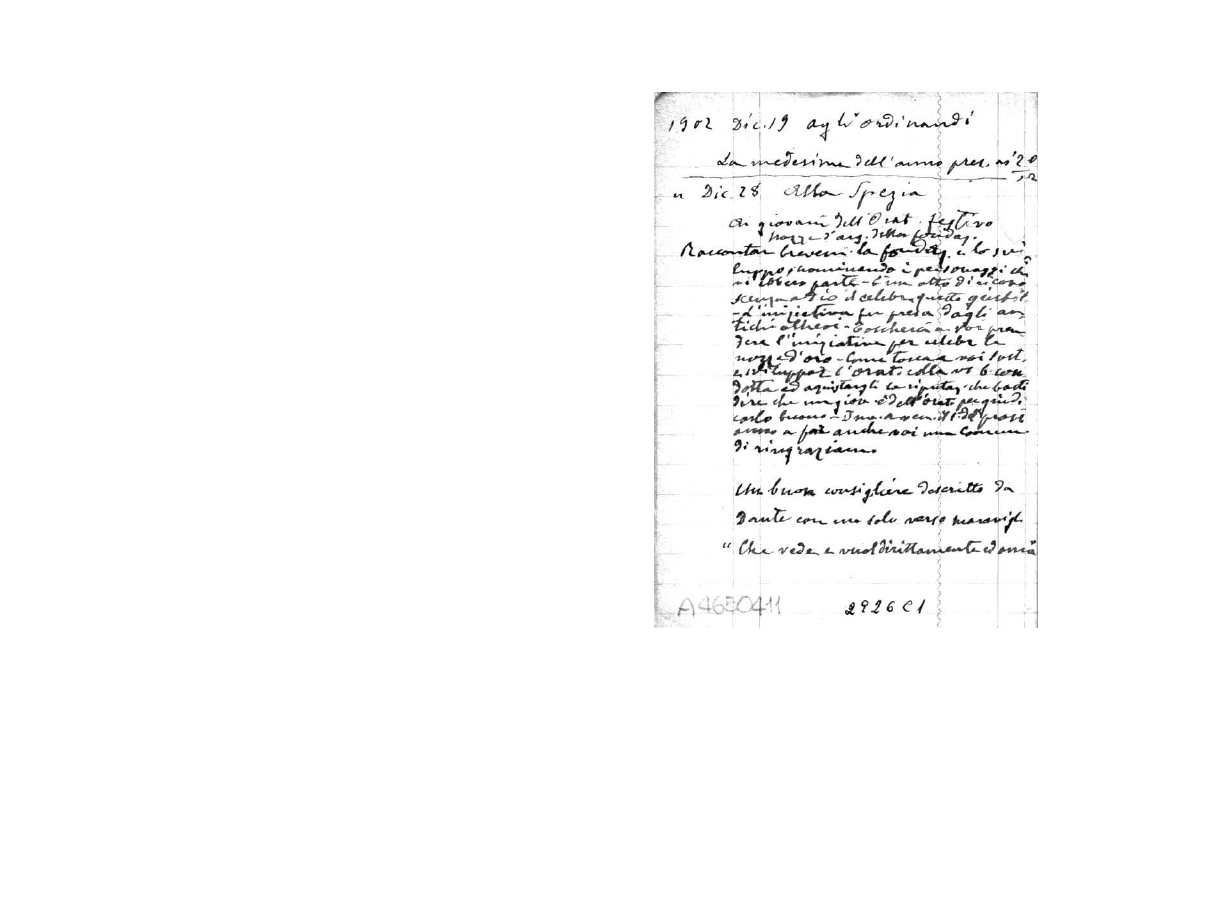 1902 Dic. 19 agli ordinandi
La medesima dell'anno prec. ai 20
12
" Dic. 28 Alla Spezia
Ai giovani dell'Orat. festivo
Nozze d'arg. della fondaz.
Raccontar brevem. la fondaz. e lo svi
luppo, nominando i personaggi che
vi ebbero parte - È un atto di ricono
scenza a Dio il celebr. questo giubil
- L'iniziativa fu presa dagli an
tichi allievi - Toccherà a voi pren
dere l'iniziativa per celebr le
nozze d'oro - Come tocca a voi sost.
e sviluppar l'Orat. colla vs b. con
dotta ed acquistargli la riputaz. che basti
dire che un giov. è dell'Orat. per giudi
carlo buono - a ven. il del pross
anno a far anche voi una Comun.
di ringraziam.
Un buon consigliere descritto da
Dante con un solo verso maravigl.
" Che vede e vuol dirittamente ed ama
A4650411
2926 C1